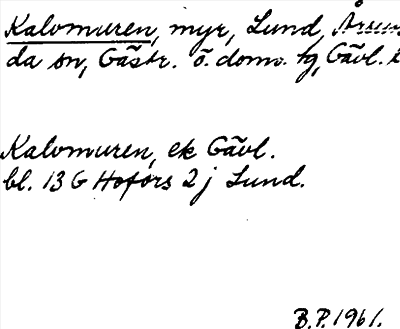 Kalvmuren, myr, Lund, Årsun-
da sn, Gästr. ö. domv. tg, Gävl.
Kalvmuren, ek Gävl.
bl. 13 G Hofors 2 j Lund.
B.P. 1961.